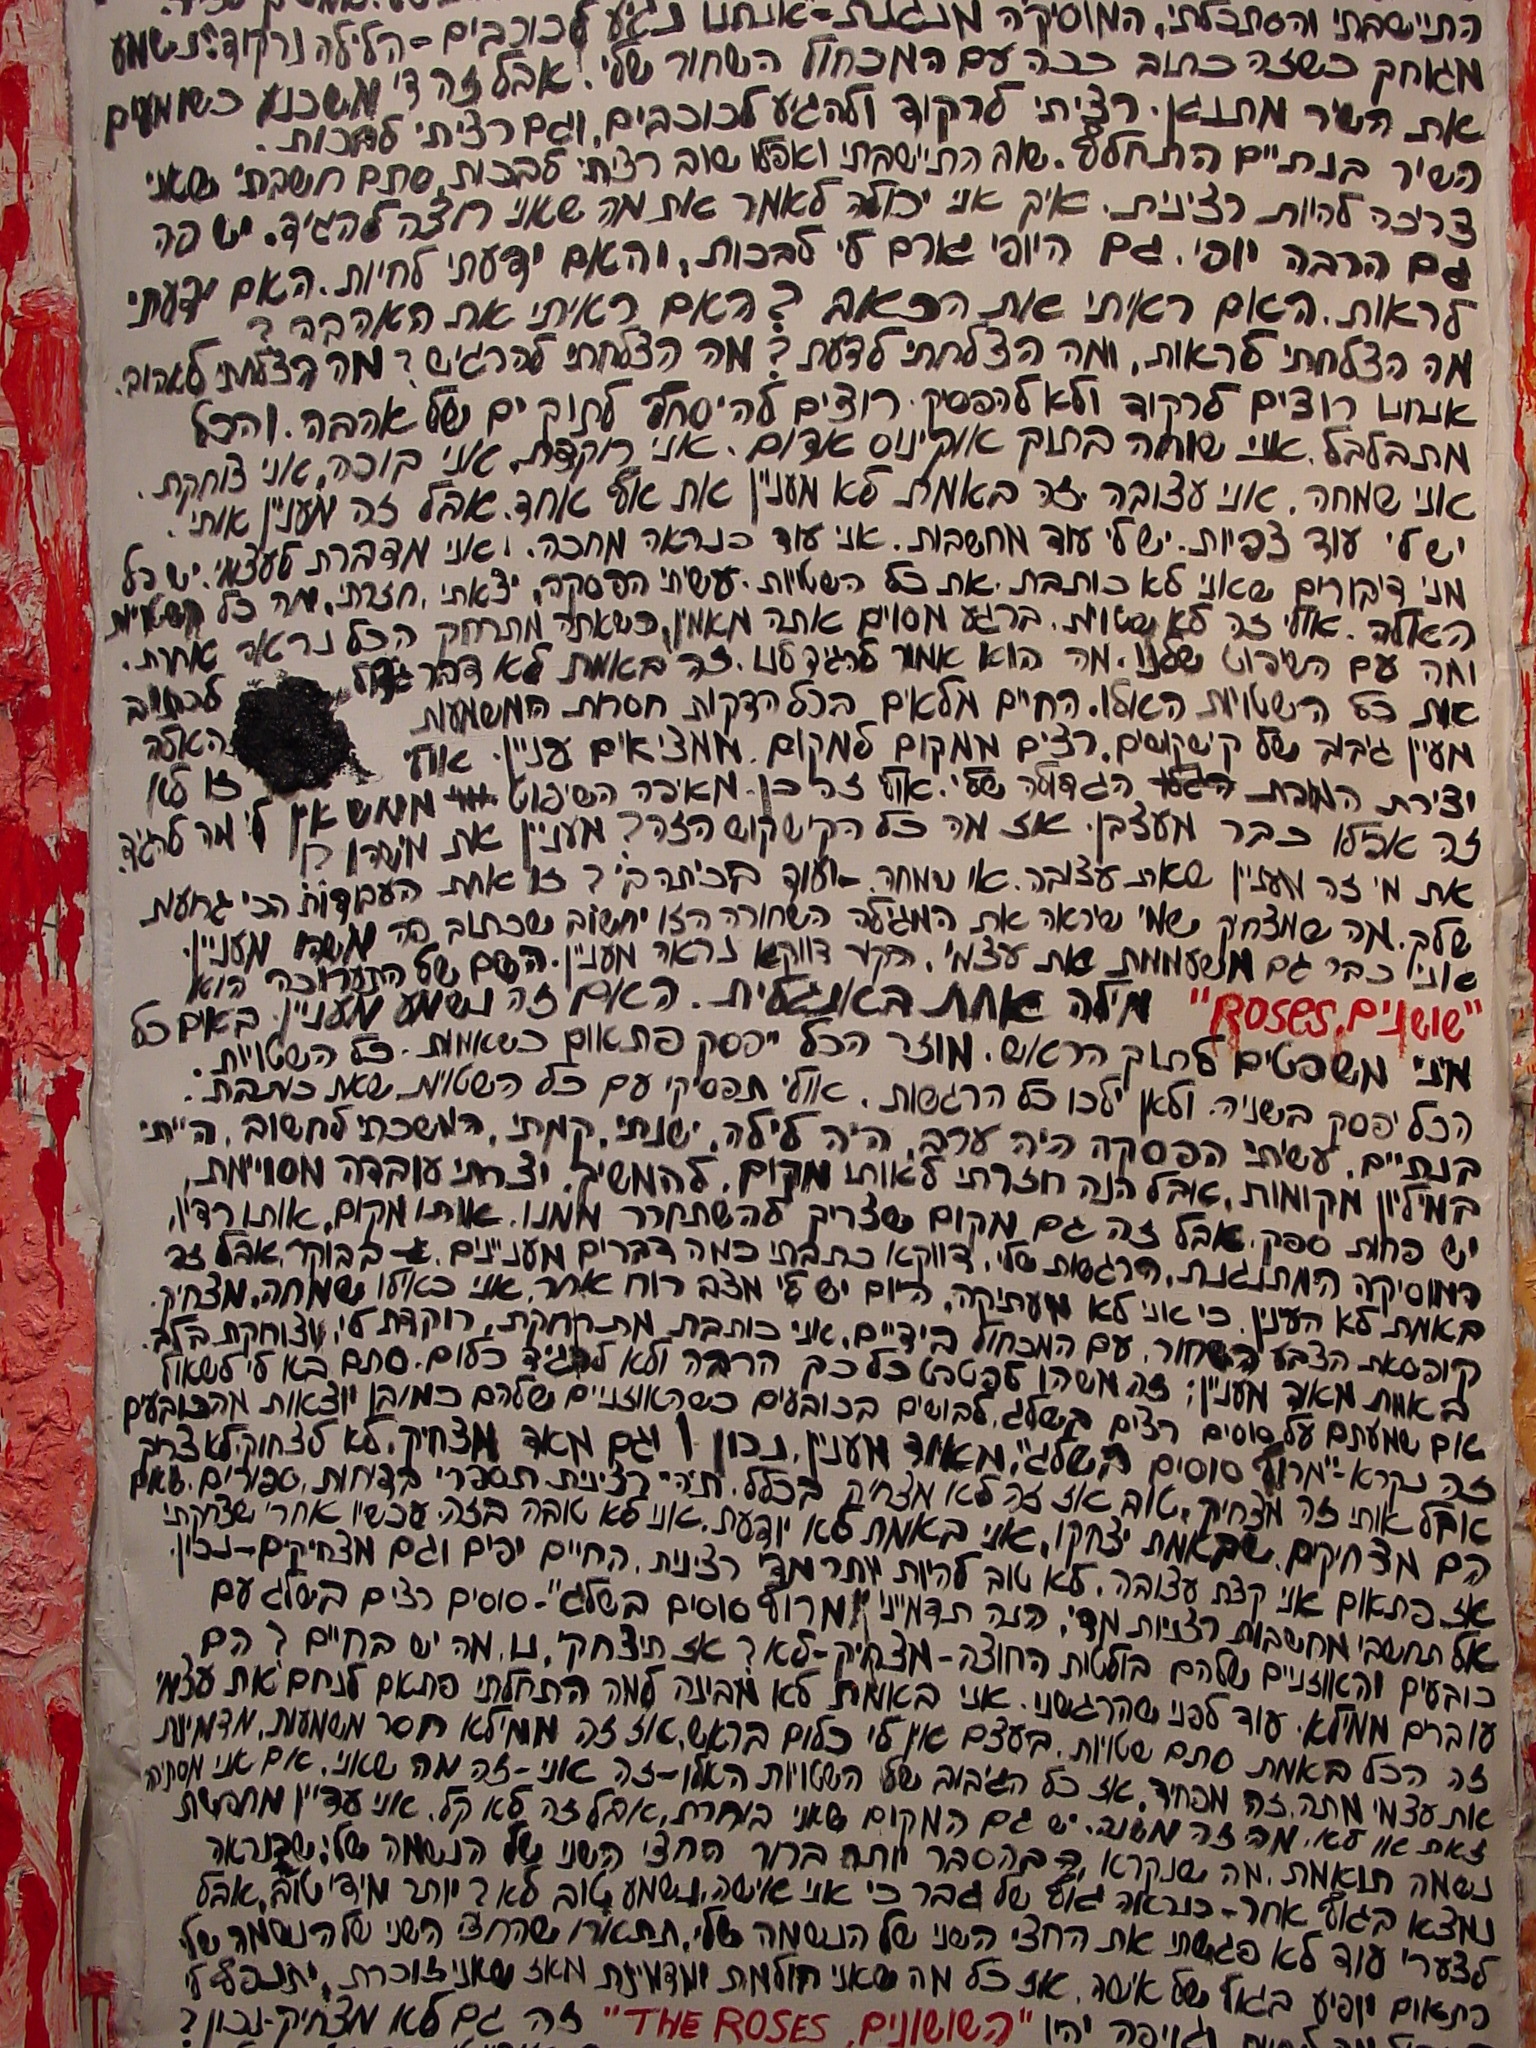 התיישבתי והסתכלתי, המוסיקה מנגנת-אנחנו נגיע לכוכבים-הלילה נרקוד. נשמע
מגוחך כשזה כתוב ככה עם המכחול השחור שלי. אבל זה די משכנע כשומעים
את השיר מתנגן. רציתי לרקוד ולהגיע לכוכבים, וגם רציתי לבכות.
השיר בנתיים התחלף. שוב התיישבתי ואפילו שוב רציתי לבכות, סתם חשבתי שאני
צריכה להיות רצינית. איך אני יכולה לאמר את מה שאני רוצה להגיד. יש פה
גם הרבה יופי. גם היופי גארם לי לבכות, והאם ידעתי לחיות. האם ידעתי
לראות. האם ראיתי את הכאב? האם ראיתי את האהבה?
מה הצלחתי לראות, ומה הצלחתי לדעת? מה הצלחתי להרגיש? מה הצלחתי לאהוב.
אנחנו רוצים לרקוד ולא להפסיק. רוצים להיסחף לתוך ים של אהבה. והכל
מתבלבל. אני שוחה בתוך אוקינוס אדום. אני רוקדת, אני בוכה, אני צוחקת.
אני שמחה. אני עצובה. זה באמת לא מעניין את אף אחד. אבל זה מעניין אותי.
יש לי עוד צפיות. יש לי עוד מחשבות. אני עוד כנראה מחכה. ואני מדברת לעצמי. יש כל
מני דיבורים שאני לא כותבת. את כל השטויות. עשיתי הפסקה, יצאתי, חזרתי, מה כל השטויות
האלה. אולי זה לא שטויות. ברגע מסוים אתה מאמין, כשאתה מתרחק הכל נראה אחרת.
ומה עם השיפוט שלנו. מה הוא אמור להגיד לנו. זה באמת לא דבר גדול לכתוב
את כל השטויות האלו. החיים מלאים בכל הדקות חסרות המשמעות האלה
מעין גיבוב של קישקושים. רצים ממקום למקום. ממציאים עניין. אולי זו לא
יצירת המופת הגדולה שלי. אולי זה כן. מאיפה השיפוט ממש אין לי מה להגיד.
זה אפילו כבר מעצבן. אז מה כל הקישקוש הזה? מעניין את מישהו?
את מי זה מעניין שאת עצובה. או שמחה. - ועוד בכיתה ב'? זו אחת העבודות הכי גרועות
שלך. מה שמצחיק שמי שיראה את המגילה השחורה הזו יחשוב שכתוב פה משהו מעניין.
אני כבר גם משעממת את עצמי. הקיר דווקא נראה מעניין. השם של התערוכה הוא
"שושנים, ROSES" מילה אחת באנגלית. האם זה נשמע מעניין. באים כל
מיני משפטים לתוך הראש. מוזר הכל ייפסק פתאום כשאמות. כל השטויות.
הכל יפסק בשניה. ולאן ילכו כל הרגשות. אולי תפסיקי עם כל השטויות שאת כותבת.
בנתיים, עשיתי הפסקה היה ערב, היה לילה, ישנתי, קמתי, המשכתי לחשוב, הייתי
במיליון מקומות, אבל הנה חזרתי לאותו מקום, להמשיך. יצרתי עובדה מסויימת,
יש פחות ספק. אבל זה גם מקום שצריך להשתחרר ממנו. אותו מקום, אותו רדיו,
המוסיקה המתנגנת, הרגשות שלי, דווקא כתבתי כמה דברים מעניינים. בבוקר, אבל זה
באמת לא העינין. כי אני לא מעתיקה, היום יש לי מצב רוח אחר, אני כאילו שמחה, מצחיק.
קופסאת הצבע השחור, עם המכחול בידיים, אני כותבת מתרחקת, רוקדת לי, וצוחקת בלב.
באמת מאוד מעניין; זה משהו לפטרט כל כך הרבה ולא להגיד כלום. סתם בא לי לשאול
אם שמעתם על סוסים רצים בשלג, לבושים בכובעים כשהאוזניים שלהם כמובן יוצאות מהכובעים
זה נקרא-"מרוץ סוסים בשלג", מאוד מעניין, נכון! וגם מאד מצחיק, לא לצחוק, לא צריך
אבל אותי זה מצחיק, טוב אז זה לא מצחיק בכלל. תיהי רצינית. תספרי בדיחות, ספורים. שאם
הם מצחיקים. שבאמת יצחקו, אני באמת לא יודעת. אני לא טובה בזה. עכשיו אחרי שצחקתי
אז פתאום אני קצת עצובה. לא טוב להיות יותר מדי רצינית. החיים יפים וגם מצחיקים-נכון.
אל תחשבי מחשבות רצניות מדי, הנה תדמייני "מרוץ סוסים בשלג"-סוסים רצים בשלג עם
כובעים והאוזניים שלהם בולטות החוצה-מצחיק-לא? אז תיצחקי, נו, מה יש בחיים? הם
עוברים ממילא. עוד לפני שהרגשנו. אני באמת לא מבינה למה התחלתי פתאם לנחם את עצמי
זה הכל באמת סתם שטויות. בעצם אין לי כלום בראש, אז זה ממילא חסר משמעות, מדמינת
את עצמי מתה, זה מפחיד, אז כל הגיבוב של השטויות האלו-זה אני-זה מה שאני, אם אני מסתירה
זאת או לא, מה זה משנה. יש גם המקום שאני בוחרת, אבל זה לא קל. אני עדיין מחפשת
נשמה תואמת. מה שנקרא, בהסבר יותר ברור החצי השני של הנשמה שלי, שכנראה
נמצא בגוף אחר-כנראה גוף של גבר כי אני אישה, נשמע טוב לא? יותר מידי טוב, אבל
לצערי עוד לא פגשתי את החצי השני של הנשמה שלי, תתארו שהחצי השני של הנשמה שלי
פתאום יופיע בגוף של אישה, אז כל מה שאני חולמת ומדמינת מאז שאני זוכרת, יתנפץ לי
וגויפה יהיו "השושנים, THE ROSES" זה גם לא מצחיק-נכון?